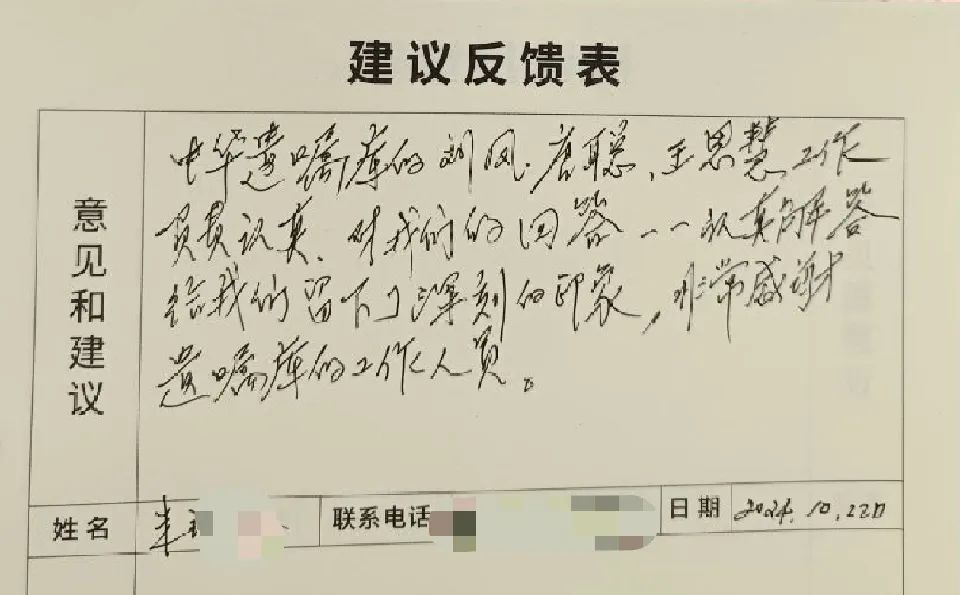 建议反馈表
意见和建议
中华遗嘱库的刘凤、唐聪、王思慧工作
负责认真、对我们的回答一一认真解答
给我们留下了深刻的印象,非常感谢
遗嘱库的工作人员。
姓名
联系电话
日期 2024.10.22日